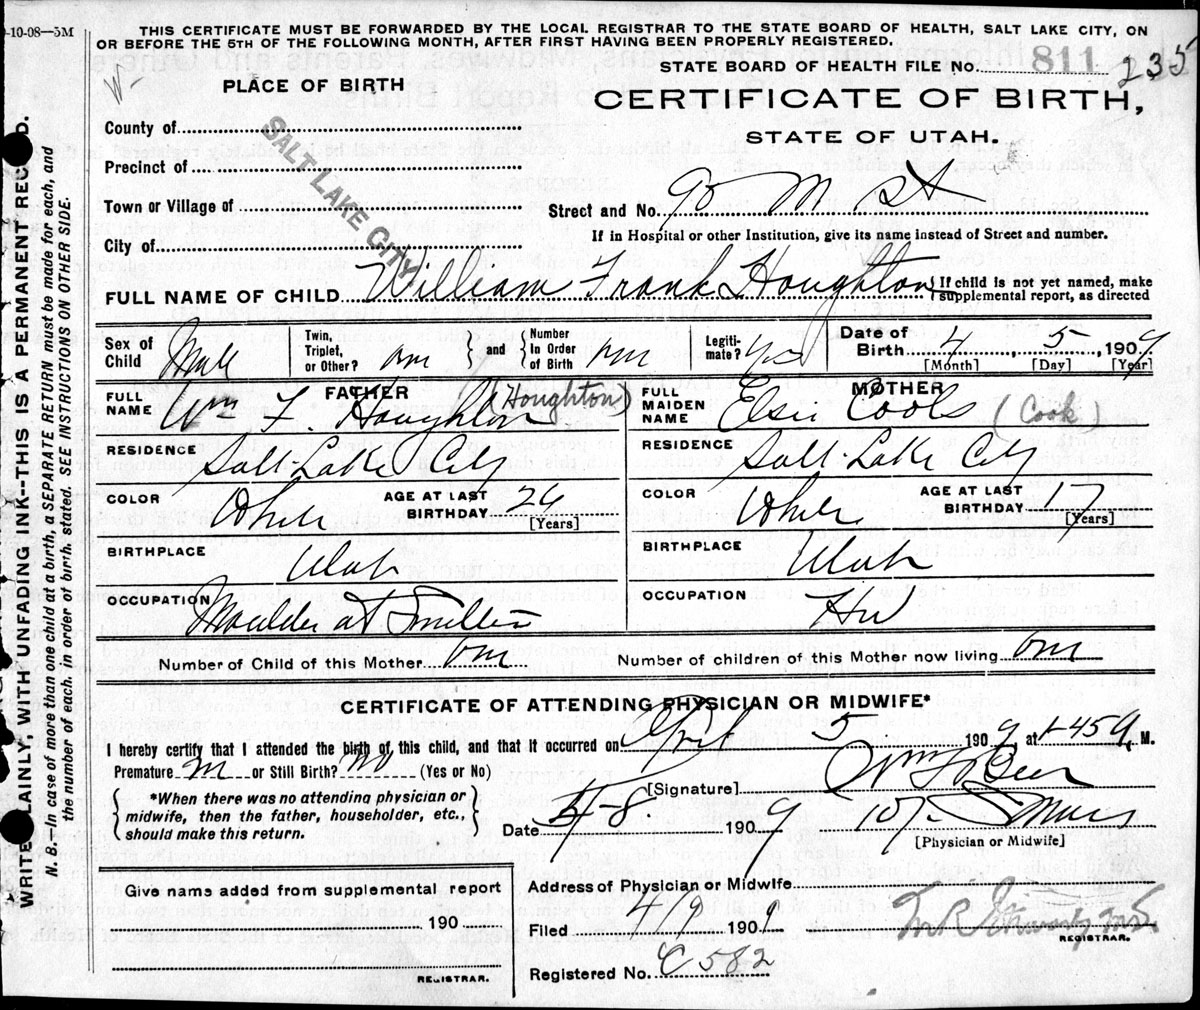 -10-08—5M
THIS CERTIFICATE MUST BE FORWARDED BY THE LOCAL REGISTRAR TO THE STATE BOARD OF HEALTH, SALT LAKE CITY, ON
OR BEFORE THE 5TH OF THE FOLLOWING MONTH, AFTER FIRST HAVING BEEN PROPERLY REGISTERED.
STATE BOARD OF HEALTH FILE No. 811 235
W
PLACE OF BIRTH
CERTIFICATE OF BIRTH,
STATE OF UTAH.
County of
Precinct of
Town or Village of
City of
SALT LAKE CITY
Street and No. 90 M St
If in Hospital or other Institution, give its name instead of Street and number.
FULL NAME OF CHILD William Frank Houghton { If child is not yet named, make
supplemental report, as directed
Sex of Child Male
Twin, Triplet, or Other? one } and { Number In Order of Birth one
Legiti-mate? Yes
Date of Birth 4, 5, 1909
[Month] [Day] [Year]
FATHER
FULL NAME Wm F. Houghton (Houghton)
RESIDENCE Salt Lake City
COLOR White AGE AT LAST BIRTHDAY 26 [Years]
BIRTHPLACE Utah
OCCUPATION Moulder at Smelter
MOTHER
FULL MAIDEN NAME Elsie Cools (Cook)
RESIDENCE Salt Lake City
COLOR White AGE AT LAST BIRTHDAY 17 [Years]
BIRTHPLACE Utah
OCCUPATION HW
Number of Child of this Mother one Number of children of this Mother now living one
CERTIFICATE OF ATTENDING PHYSICIAN OR MIDWIFE*
I hereby certify that I attended the birth of this child, and that it occurred on April 5 1909, at 1-45 a. M.
Premature no or Still Birth? no (Yes or No)
{ *When there was no attending physician or
midwife, then the father, householder, etc.,
should make this return. }
[Signature] Wm F Beer
Date 4-8- 1909
[Physician or Midwife]
Give name added from supplemental report
190
REGISTRAR.
Address of Physician or Midwife
Filed 4/9 1909
REGISTRAR.
Registered No. C582
WRITE PLAINLY, WITH UNFADING INK--THIS IS A PERMANENT RECORD.
N. B.—In case of more than one child at a birth, a SEPARATE RETURN must be made for each, and
the number of each, in order of birth, stated. SEE INSTRUCTIONS ON OTHER SIDE.